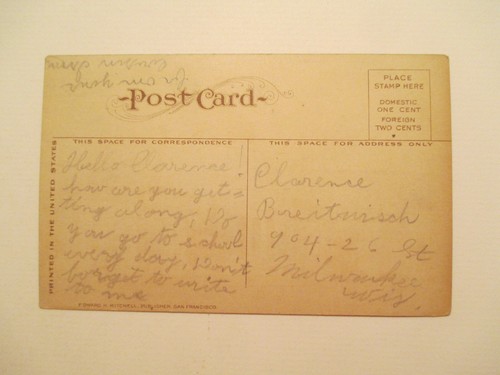 Post Card
PLACE
STAMP HERE
DOMESTIC
ONE CENT
FOREIGN
TWO CENTS
THIS SPACE FOR CORRESPONDENCE
THIS SPACE FOR ADDRESS ONLY
PRINTED IN THE UNITED STATES
Hello Clarence
how are you get-
ting along, Do
you go to school
every day, Don't
forget to write
to me
Clarence
Breitwisch
904-26 St
Milwaukee
Wis.
EDWARD H. MITCHELL, PUBLISHER, SAN FRANCISCO